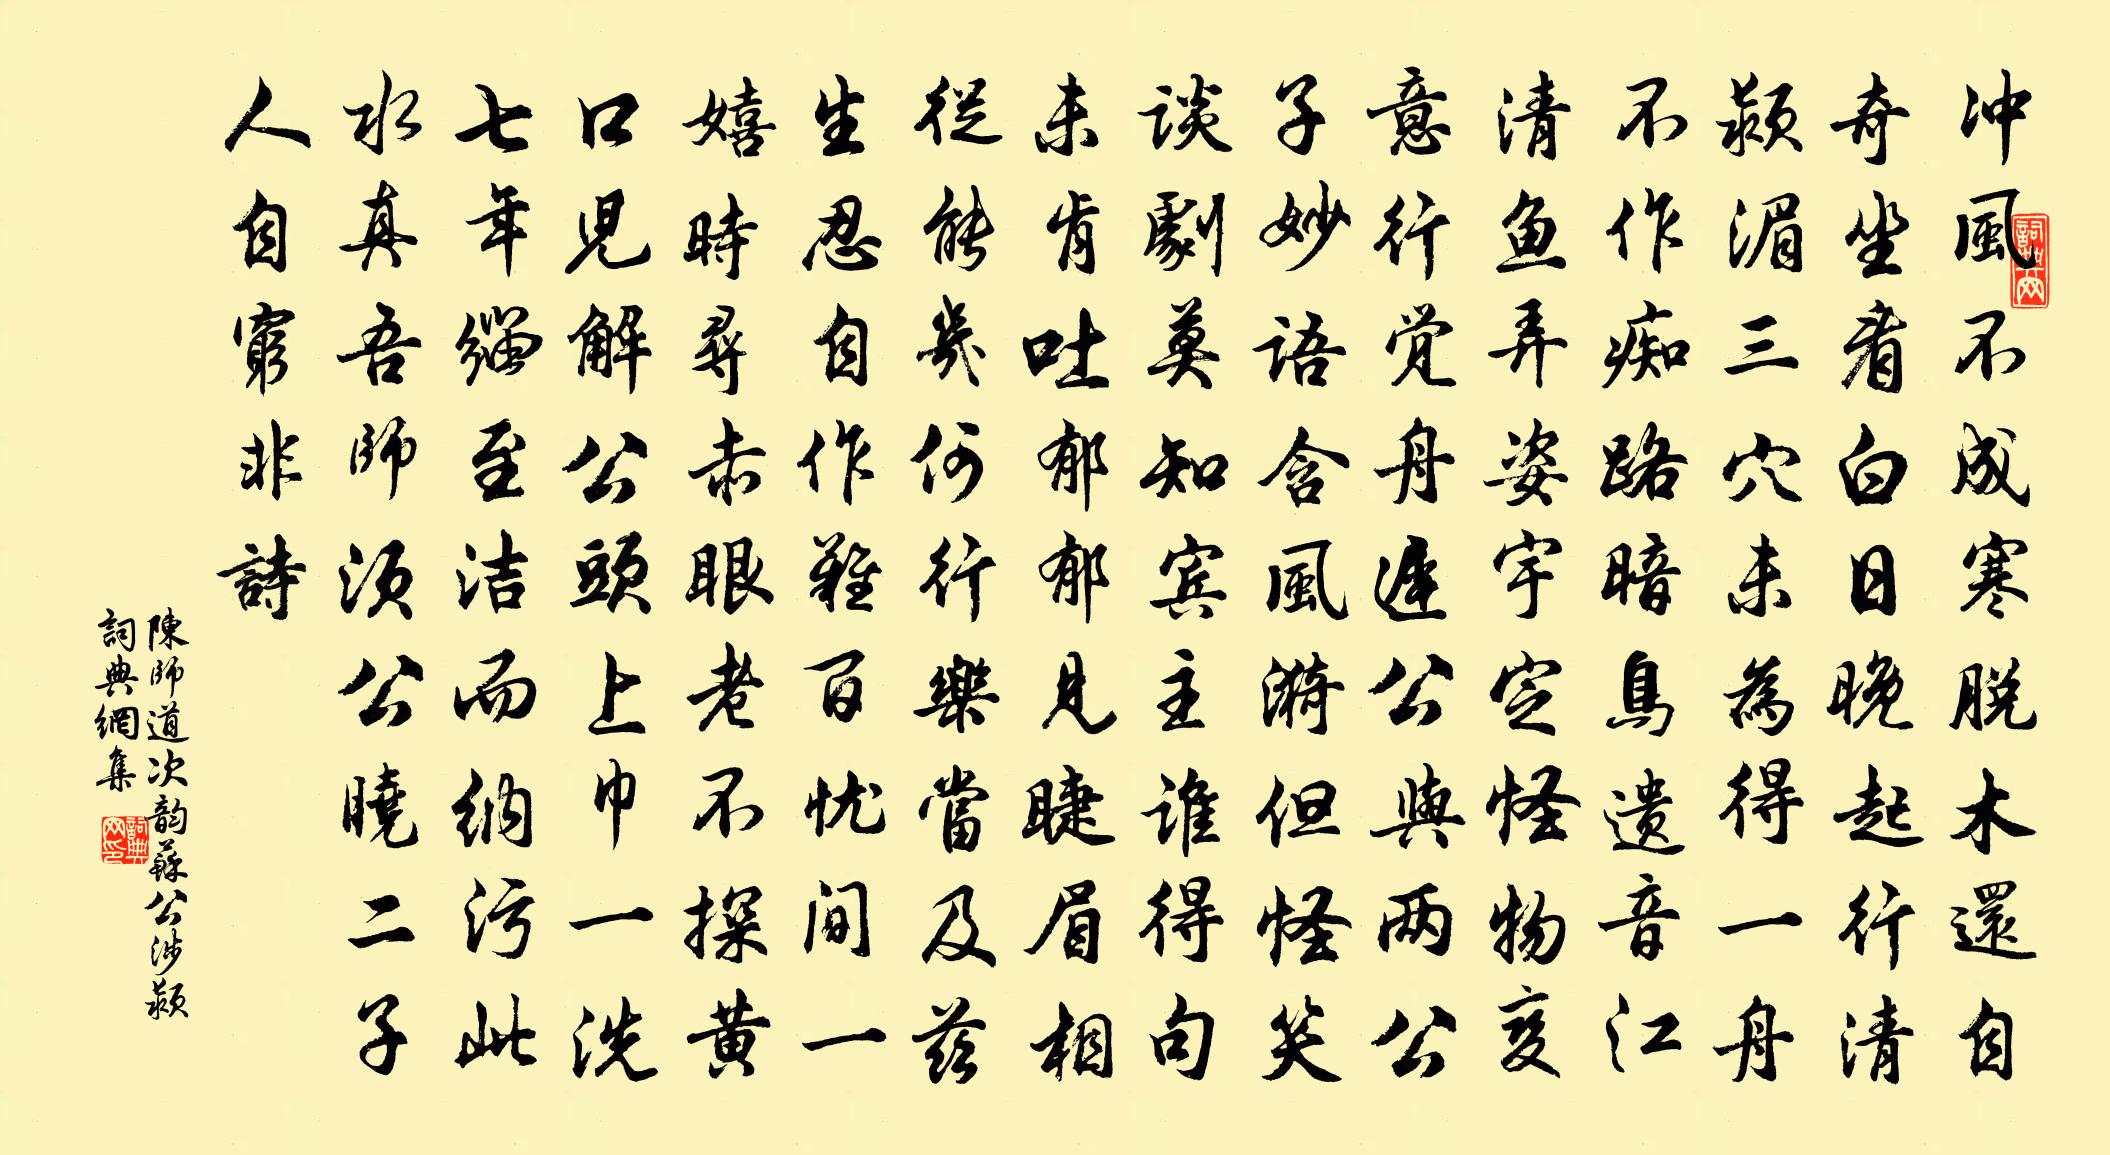 冲風不成寒脱木還自
奇坐看白日晚起行清
颍湄三穴未為得一舟
不作痴路暗鳥遗音江
清魚弄姿宇定怪物变
意行觉舟遲公與两公
子妙語含風漪但怪笑
談劇莫知宾主谁得句
未肯吐郁郁見睫眉相
從能幾何行樂當及兹
生忍自作難百忧间一
嬉時尋赤眼老不探黄
口兒解公頭上巾一洗
七年缁至洁而納污此
水真吾師须公曉二子
人自窮非詩
陳師道次韵蘇公涉颍
詞典網集